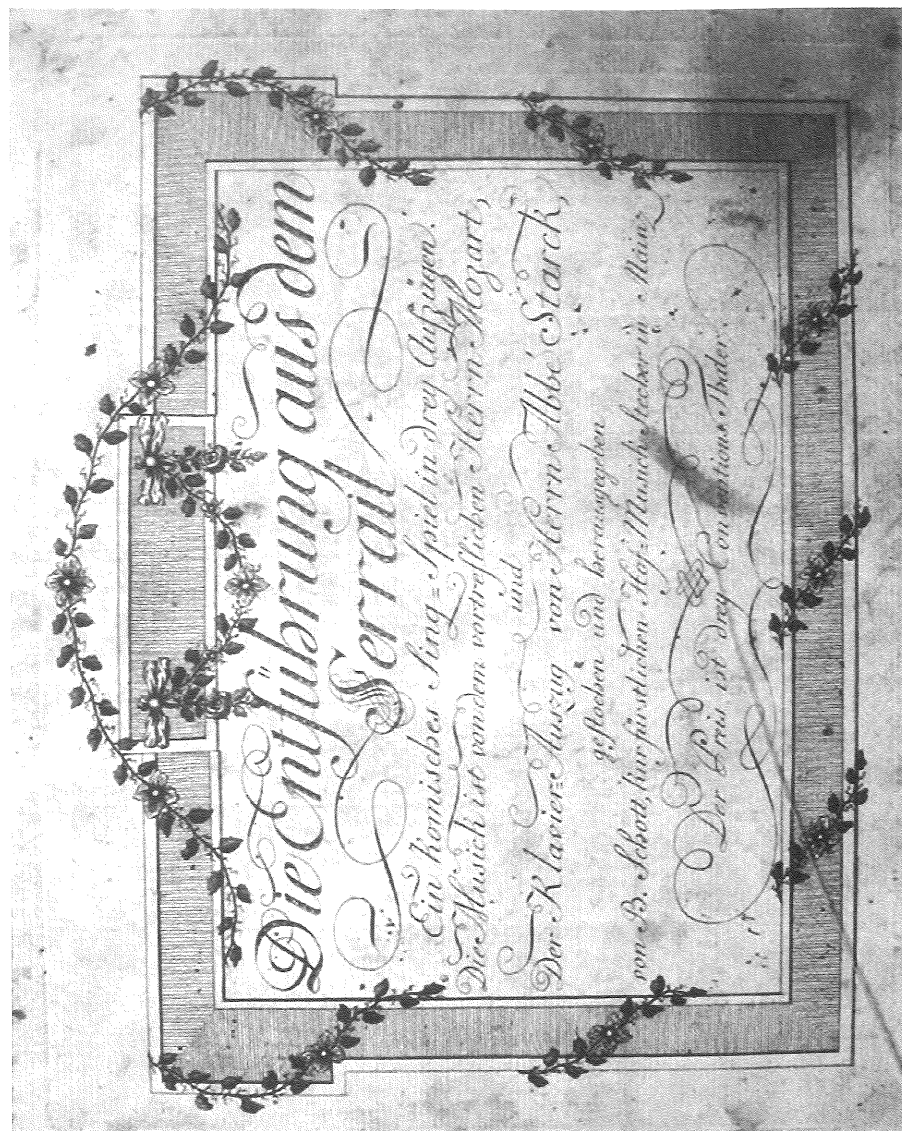 Die Entführung aus dem
Serrail
Ein komisches Sing=Spiel in drey Aufzügen.
Die Musick ist von dem vortreflichen Herrn Mozart,
und
Der Klavier=Auszug von Herrn Abbé Starck,
gestochen und herausgegeben
von B. Schott, kurfürstlichen Hof=Musick=Stecher in Mainz
Der Preis ist drey Conventions Thaler.